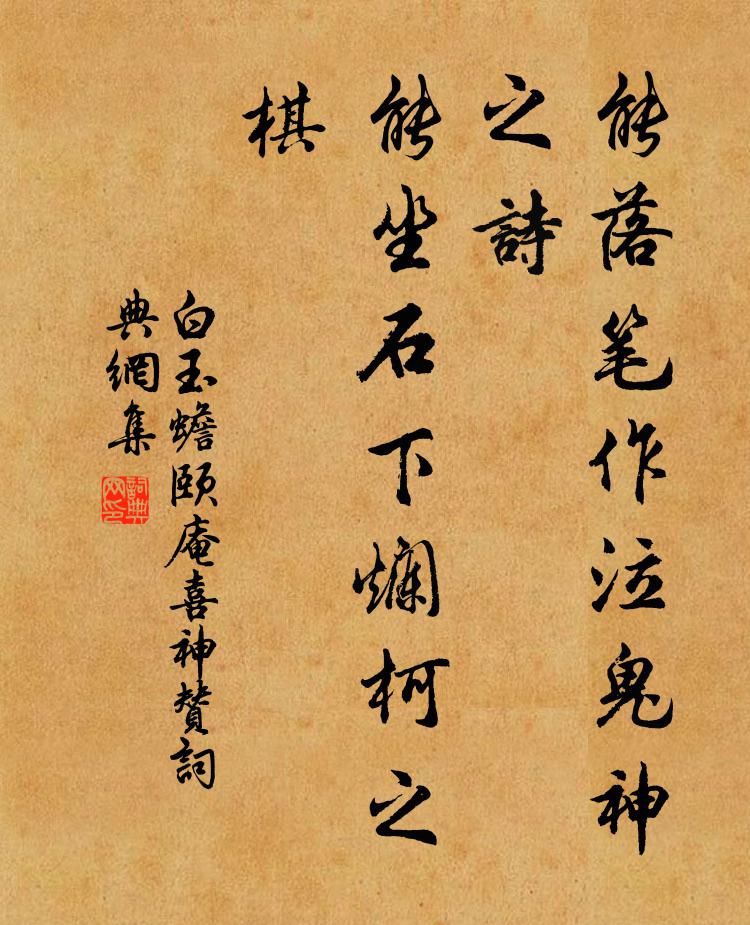 能落笔作泣鬼神
之詩
能坐石下爛柯之
棋
白玉蟾頤庵喜神賛詞
典網集
詞典
网印